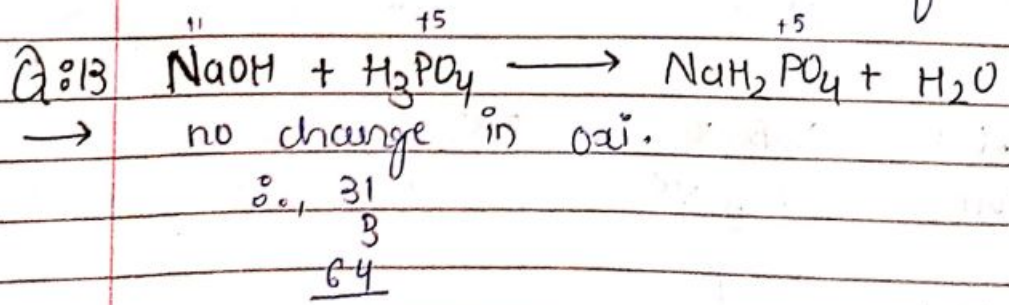 +1 +5 +5
Q:13 NaOH + H₃PO₄ ⟶ NaH₂PO₄ + H₂O
→ no change in oxi.
∴, 31
3
64